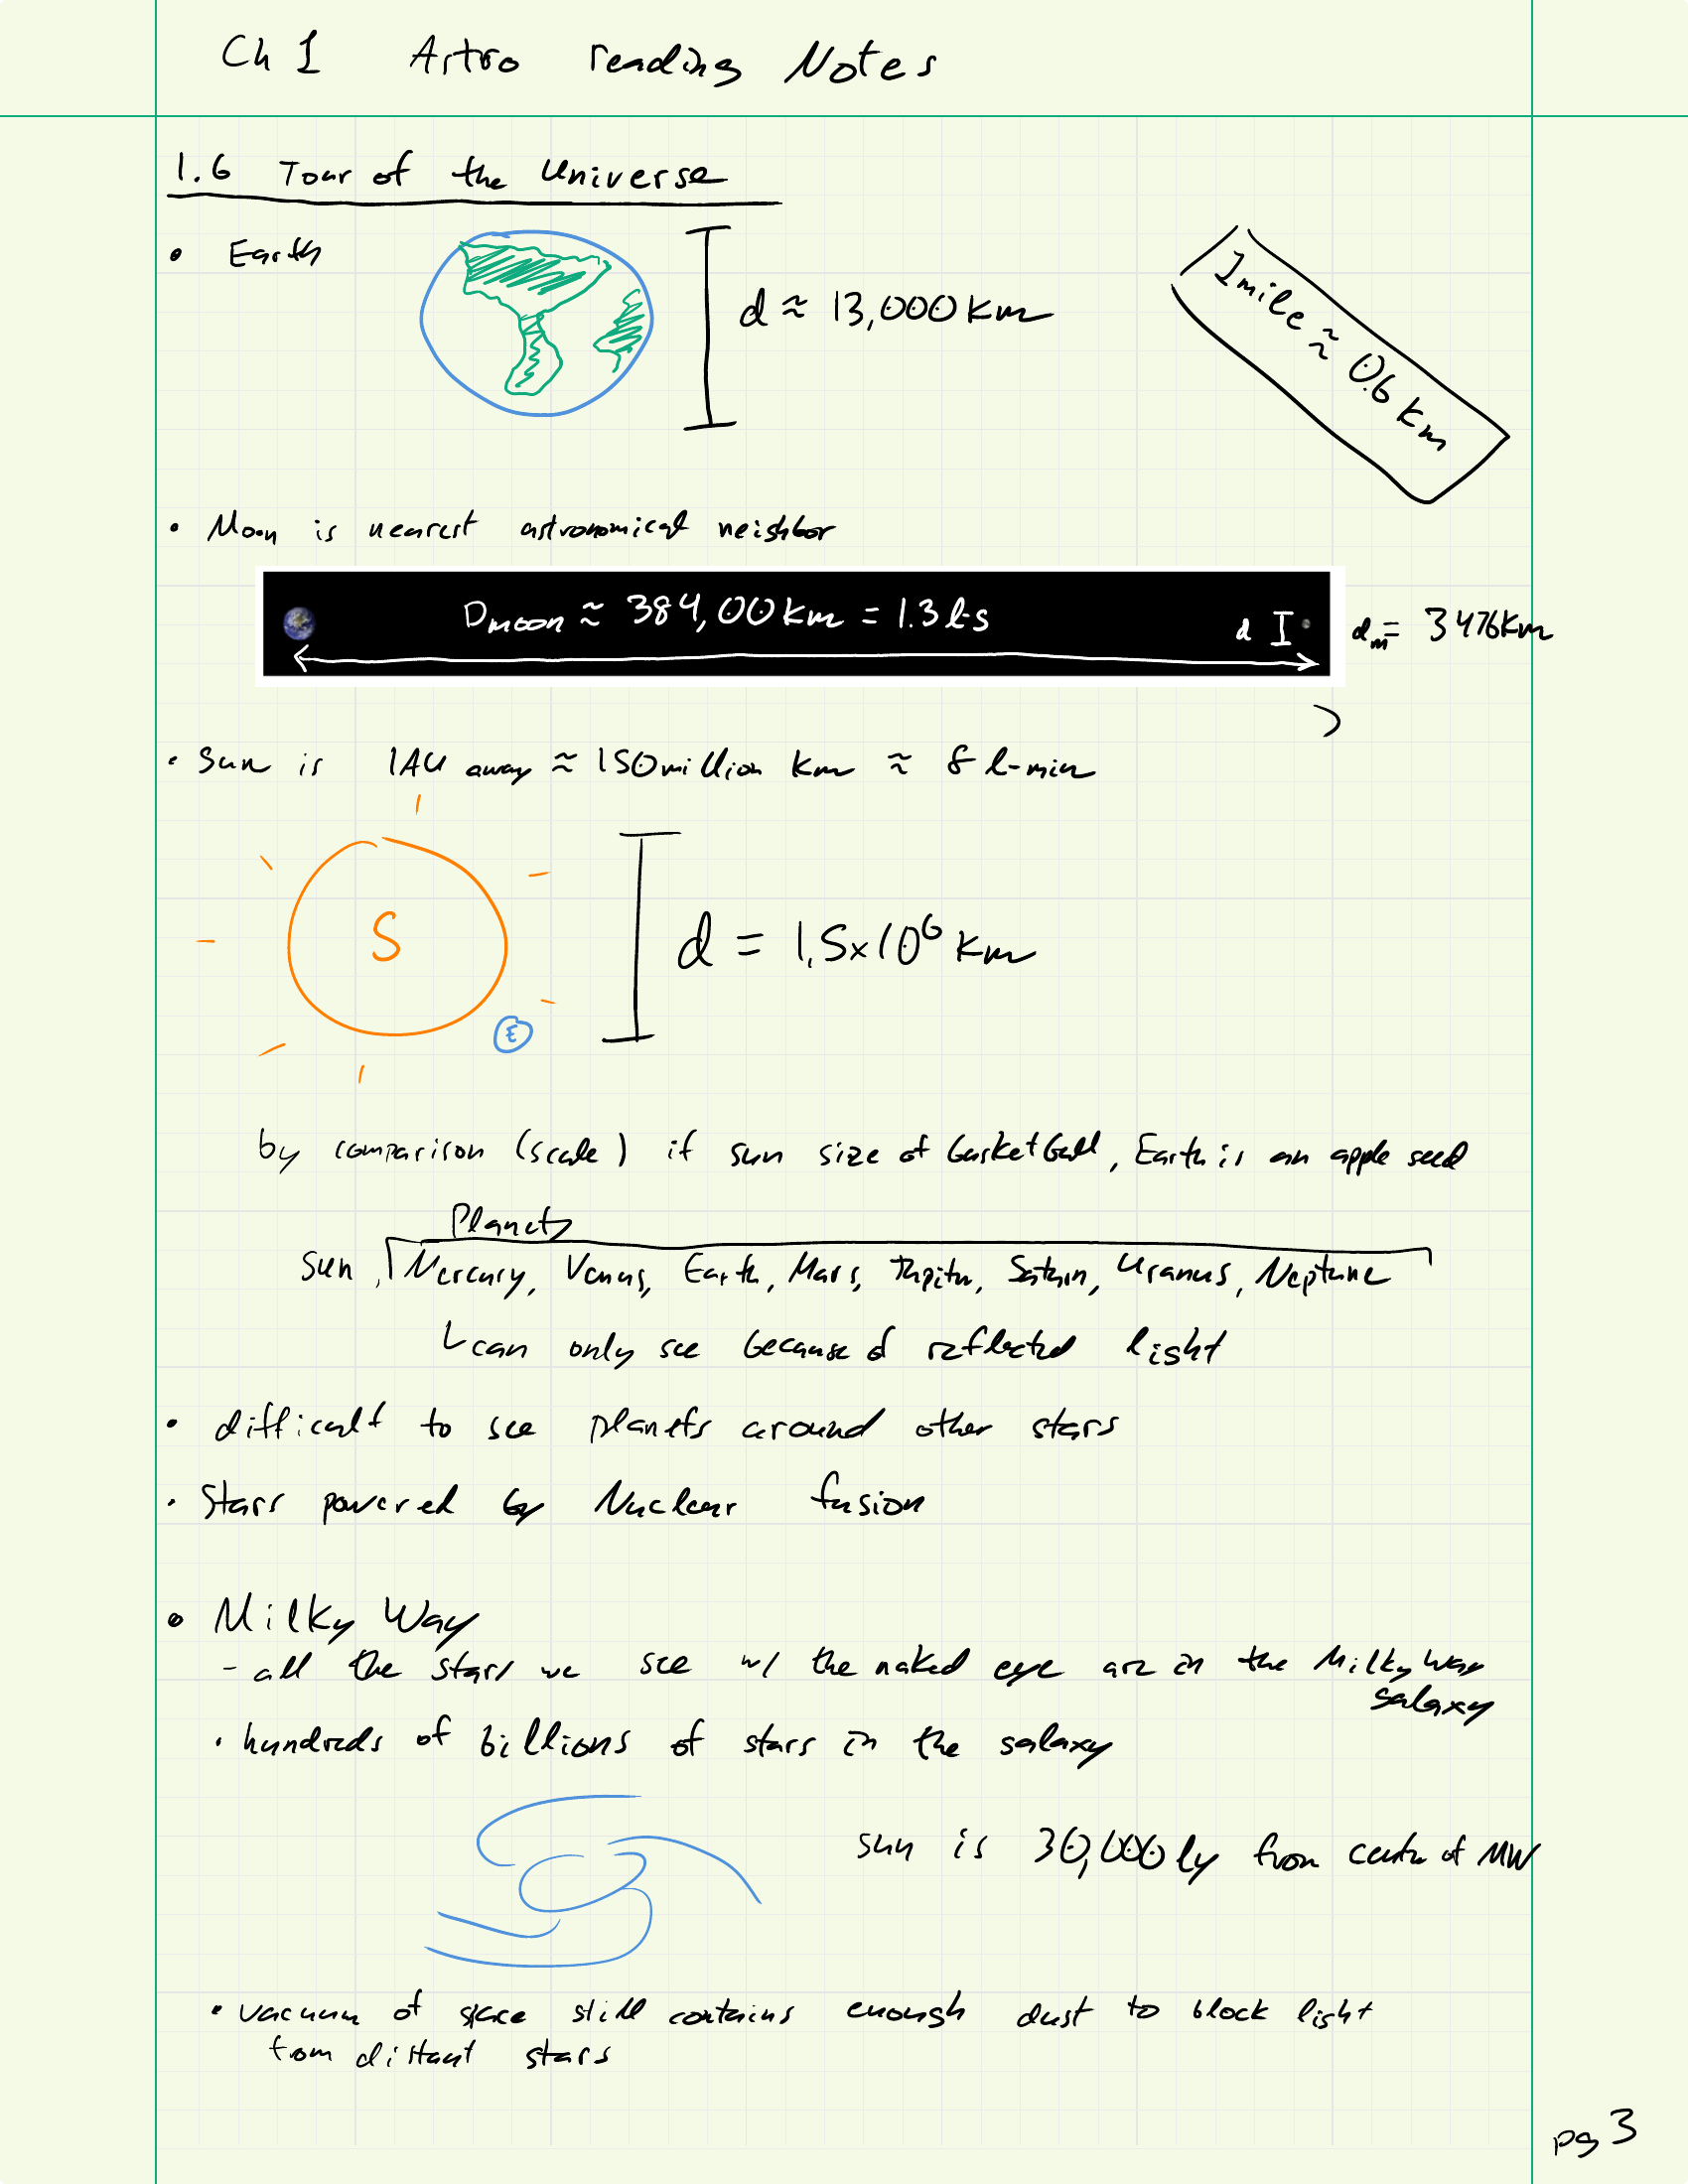 Ch 1 Astro reading Notes
1.6 Tour of the Universe
• Earth
d ≈ 13,000 km
1 mile ≈ 0.6 km
• Moon is nearest astronomical neighbor
Dmoon ≈ 384,00 km = 1.3 l-s
d
dm = 3476 km
• Sun is 1AU away ≈ 150 million km ≈ 8 l-min
S
E
d = 1.5x10⁶ km
by comparison (scale) if sun size of basketball, Earth is an apple seed
Planets
Sun, Mercury, Venus, Earth, Mars, Jupiter, Saturn, Uranus, Neptune
can only see because of reflected light
• difficult to see planets around other stars
• Stars powered by Nuclear fusion
• Milky Way
- all the stars we see w/ the naked eye are in the Milky Way
galaxy
• hundreds of billions of stars in the galaxy
sun is 30,000 ly from center of MW
• vacuum of space still contains enough dust to block light
from distant stars
pg 3